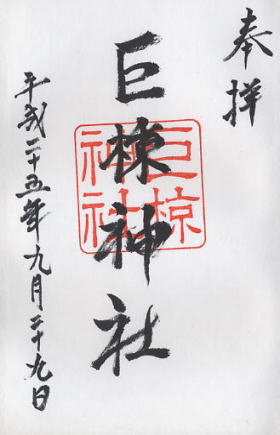 奉拝
巨椋神社
巨椋
神社
平成二十五年九月二十九日